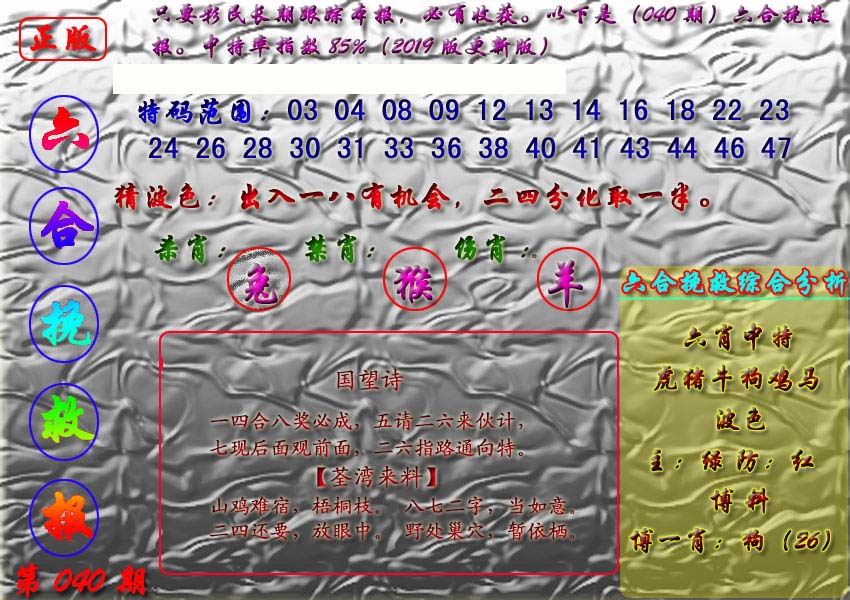 正版
只要彩民长期跟踪本报，必有收获。以下是（040期）六合挽救
报。中特率指数85%（2019版更新版）
六合挽救报
第040期
特码范围：03 04 08 09 12 13 14 16 18 22 23
24 26 28 30 31 33 36 38 40 41 43 44 46 47
猜波色：出入一八有机会，二四分化取一半。
杀肖： 禁肖： 伤肖：。
兔 猴 羊
国望诗
一四合八奖必成，五请二六来伙计，
七现后面观前面，二六指路通向特。
【荃湾来料】
山鸡难宿，梧桐枝。 八七二字，当如意。
二四还要，放眼中。 野处巢穴，暂依栖。
六合挽救综合分析
六肖中特
虎猪牛狗鸡马
波色
主：绿 防：红
博料
博一肖：狗（26）